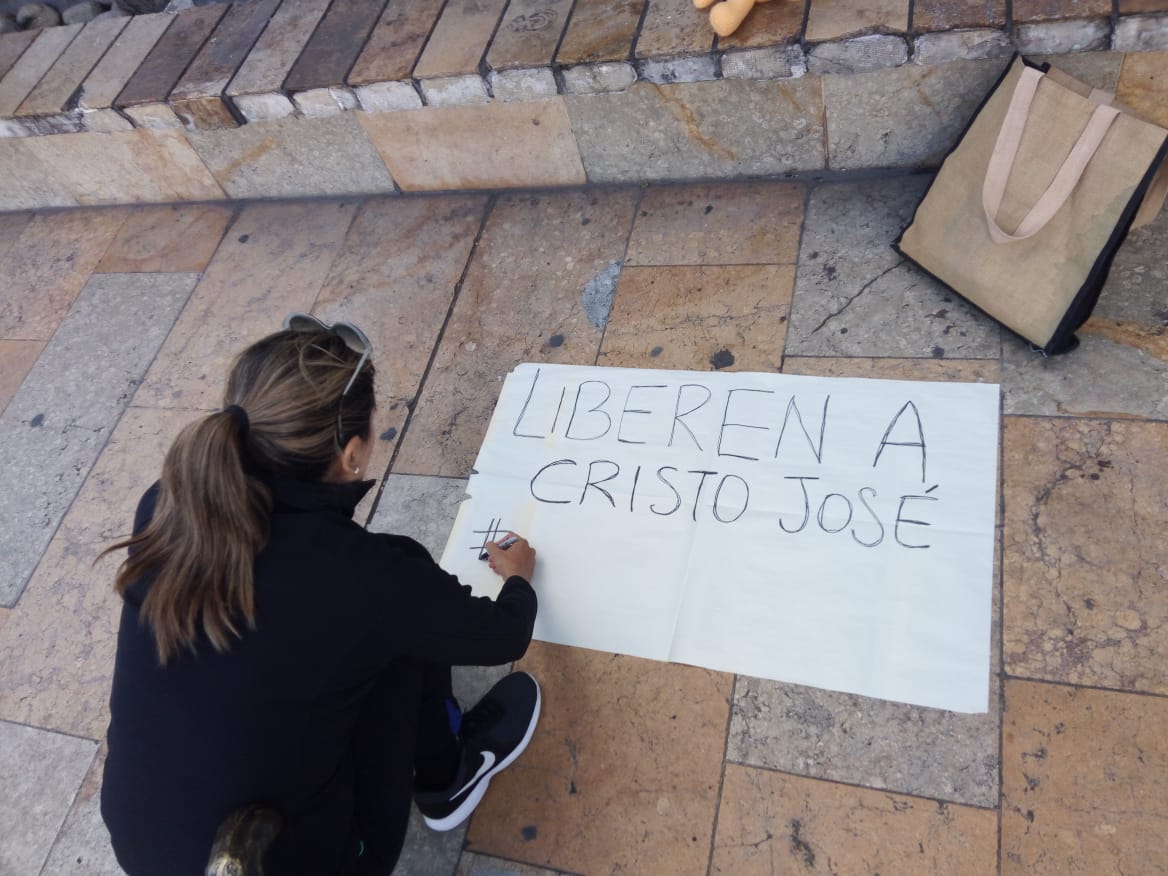 LIBEREN A
CRISTO JOSÉ
#